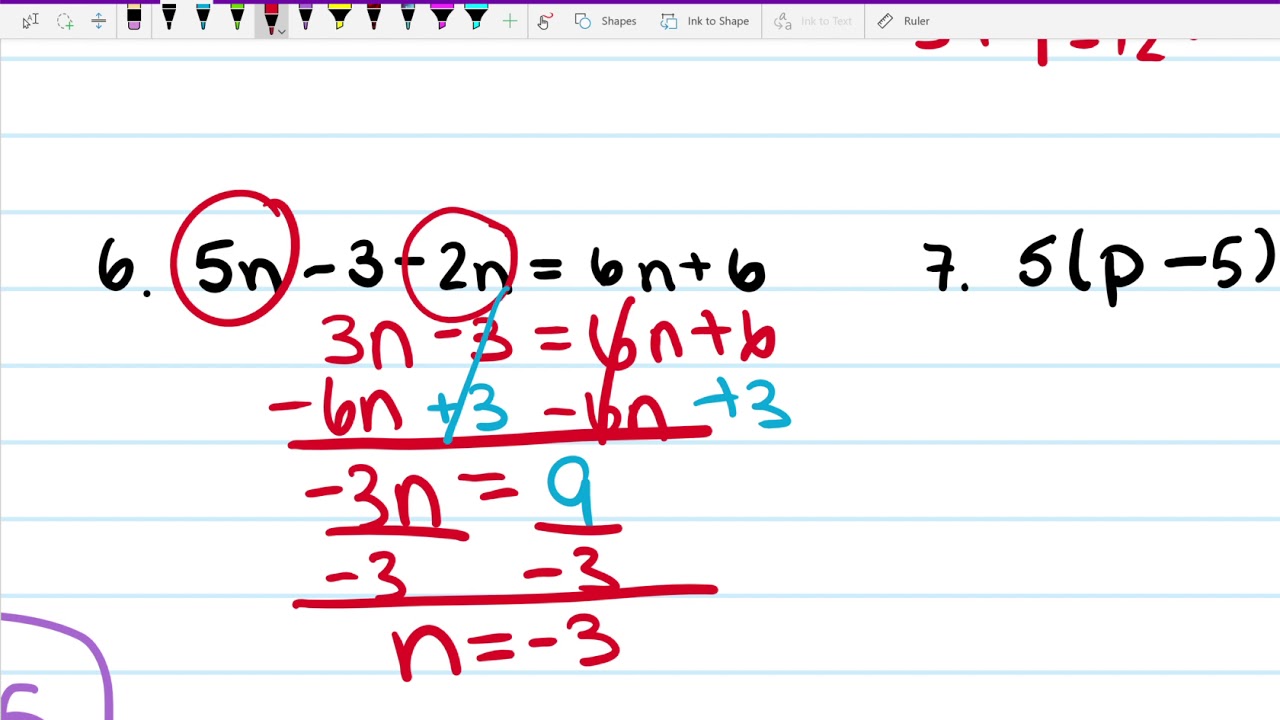 Shapes Ink to Shape Ink to Text Ruler
6. 5n - 3 - 2n = 6n + 6
7. 5(p - 5)
3n - 3 = 6n + 6
-6n +3 -6n +3
-3n = 9
-3 -3
n = -3
5